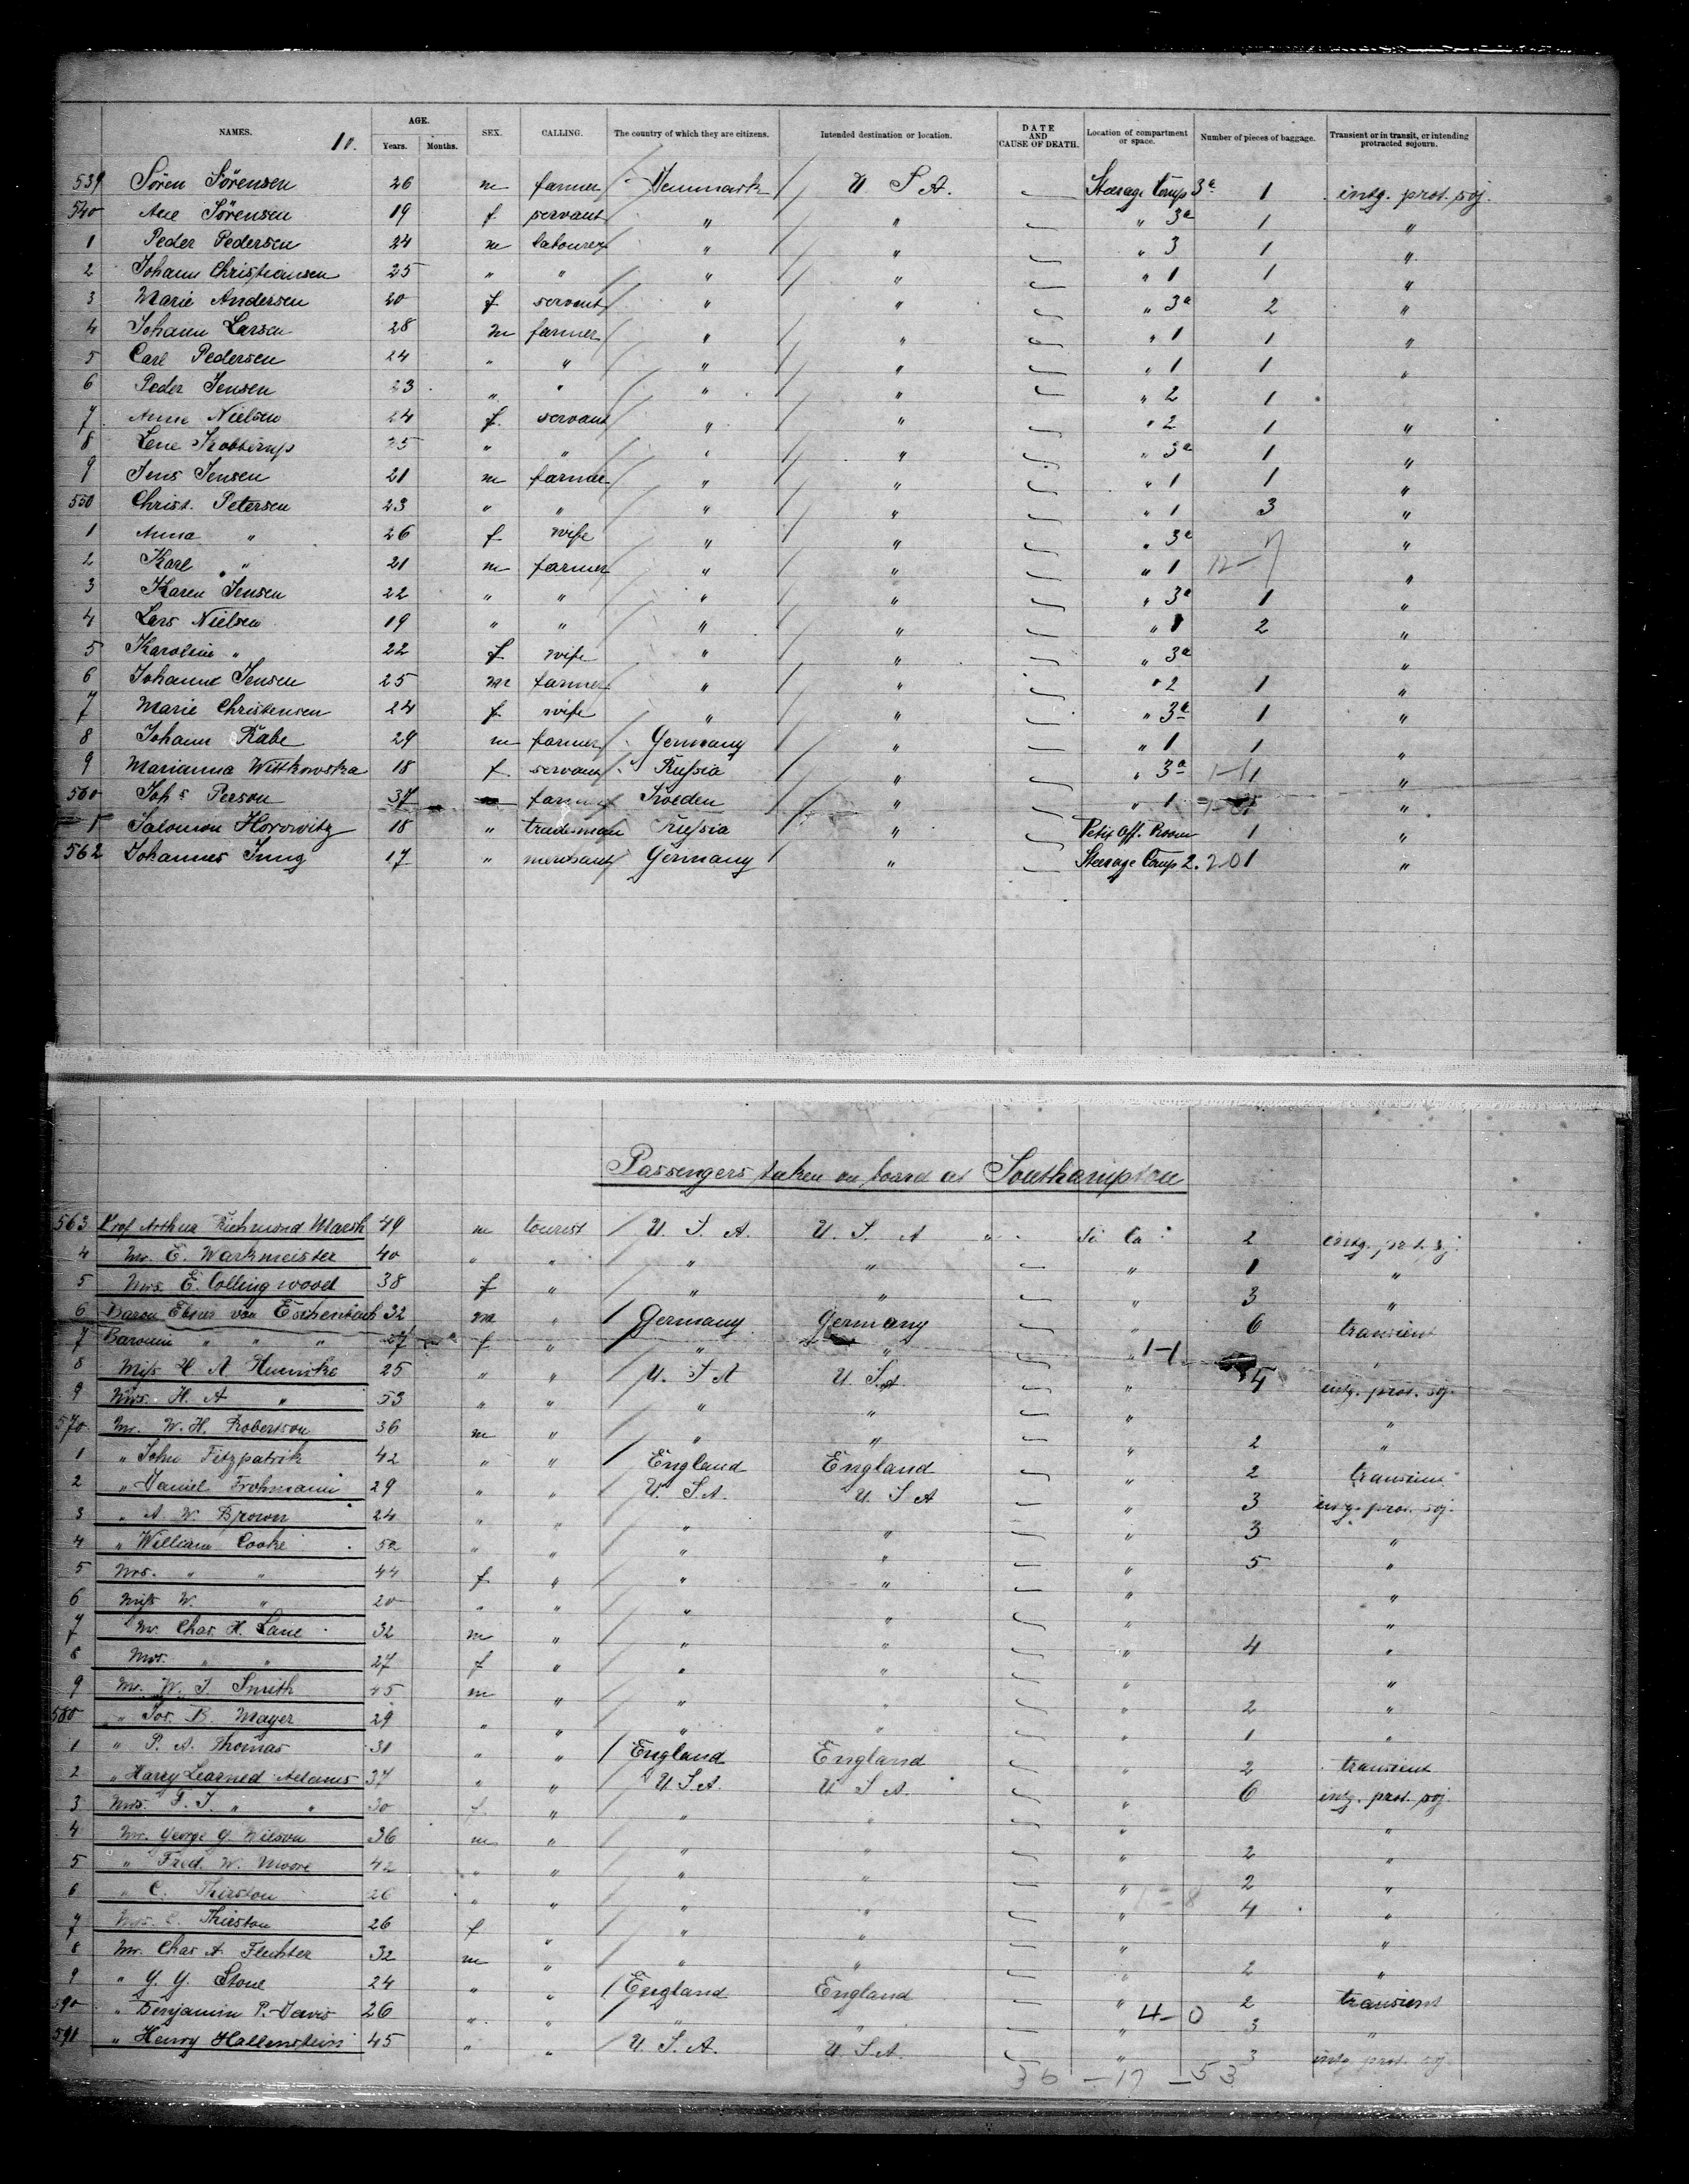 NAMES. 10. AGE. Years. Months. SEX. CALLING. The country of which they are citizens. Intended destination or location. DATE AND CAUSE OF DEATH. Location of compartment or space. Number of pieces of baggage. Transient or in transit, or intending protracted sojourn.
539 Sören Sörensen 26 m farmer Denmark U S A. Steerage Comp 3a 1 intg. prot. soj.
540 Ane Sörensen 19 f servant " " " 3a 1 "
1 Peder Pedersen 24 m labourer " " " 3 1 "
2 Johann Christiansen 25 " " " " " 1 1 "
3 Marie Andersen 20 f servant " " " 3a 2 "
4 Johann Larsen 28 m farmer " " " 1 1 "
5 Carl Pedersen 24 " " " " " 1 1 "
6 Peder Jensen 23 " " " " " 2 1
7 Anne Nielsen 24 f servant " " " 2 1 "
8 Lene 25 " " " " " 3a 1 "
9 Jens Jensen 21 m farmer " " " 1 1 "
550 Christ. Petersen 23 " " " " " 1 3 "
1 Anna " 26 f wife " " " 3a "
2 Karl " 21 m farmer " " " 1 12 – 7 "
3 Karen Jensen 22 " " " " " 3a 1 "
4 Lars Nielsen 19 " " " " " 1 2 "
5 Karoline " 22 f wife " " " 3a "
6 Johanne Jensen 25 m farmer " " " 2 1 "
7 Marie Christensen 24 f wife " " " 3a 1 "
8 Johann Rabe 29 m farmer Germany " " 1 1 "
9 Marianna Wittkowska 18 f servant Russia " " 3a 1-1 1 "
560 Johs Person 37 m farmer Sweden " " 1 "
1 Salomon Horowitz 18 " tradesman Russia " Petix Off. Room 1 "
562 Johannes Jung 17 " merchant Germany " Steerage Comp 2. 2-0 1 "
Passengers taken on board at Southampton
563 Prof Arthur Richmond Marsh 49 m tourist U. S. A. U. S. A " 2 intg. prot. soj.
4 Mr. E. Warkmeister 40 " " " " " 1 "
5 Mrs. E. Collingwood 38 f " " " " 3 "
6 Baron Ebner von Eschenbach 32 m " Germany Germany " 6 transient
7 Baronin " " " 27 f " " " " 1-1 "
8 Miss H A Huenike 25 " " U. S A U. S A. " 4 intg. prot. soj.
9 Mrs. H. A " 53 " " " " " "
570 Mr. W. H. Robertson 36 m " " " " 2 "
1 " John Fitzpatrik 42 " " England England " 2 transient
2 " Daniel Frohmann 29 " " U. S A. U. S A " 3 intg. prot. soj.
3 " A. W. Brown 24 " " " " " 3 "
4 " William Cooke 52 " " " " " 5 "
5 Mrs. " " 44 f " " " " "
6 Miss W. " 20 " " " " " "
7 Mr. Chas. H. Lane 32 m " " " " 4 "
8 Mrs. " " 27 f " " " " "
9 Mr. W. J. Smith 45 m " " " " 2 "
580 " Jos. B. Mayer 29 " " " " " 1 "
1 " P. A. Thomas 31 " " England England " 2 transient
2 " Harry Learned Adams 37 " " U. S. A. U S A. " 6 intg. prot. soj.
3 Mrs. F. J. " " 30 f " " " " "
4 Mr. George G. Wilson 36 m " " " " 2 "
5 " Fred. W. Moore 42 " " " " " 2 "
6 " C. Thirston 26 " " " " " 4 "
7 Mrs. C. Thirston 26 f " " " " "
8 Mr. Chas A. Flechter 32 m " " " " 2 "
9 " G. G. Stone 24 " " England England " 2 transient
590 " Benjamin P. Davis 26 " " " " " 4-0 3 "
591 " Henry Hallenstein 45 " " U. S. A. U. S A. " 3 intg. prot. soj.
36 – 17 – 53